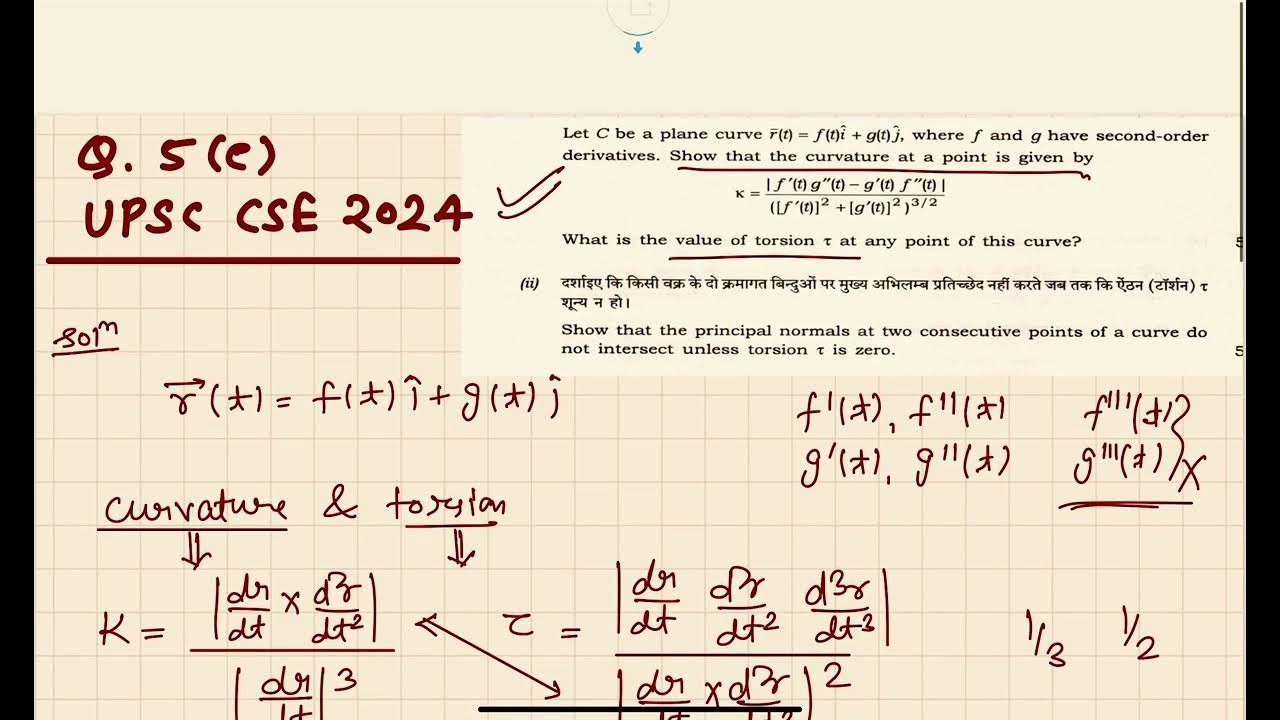 Q. 5(e)
UPSC CSE 2024
Let C be a plane curve r̄(t) = f(t)î + g(t)ĵ, where f and g have second-order
derivatives. Show that the curvature at a point is given by
κ = | f′(t) g″(t) − g′(t) f″(t) | / ([f′(t)]² + [g′(t)]²)^3/2
What is the value of torsion τ at any point of this curve?
5
(ii) दर्शाइए कि किसी वक्र के दो क्रमागत बिन्दुओं पर मुख्य अभिलम्ब प्रतिच्छेद नहीं करते जब तक कि ऐंठन (टॉर्शन) τ
शून्य न हो।
Show that the principal normals at two consecutive points of a curve do
not intersect unless torsion τ is zero.
5
Solⁿ
r⃗(t) = f(t) î + g(t) ĵ
f'(t), f''(t) f'''(t)
g'(t), g''(t) g'''(t) } X
curvature & torsion
⇓ ⇓
K = |dr/dt × d²r/dt²| / |dr/dt|³
τ = |dr/dt d²r/dt² d³r/dt³| / |dr/dt × d²r/dt²|²
1/3 1/2